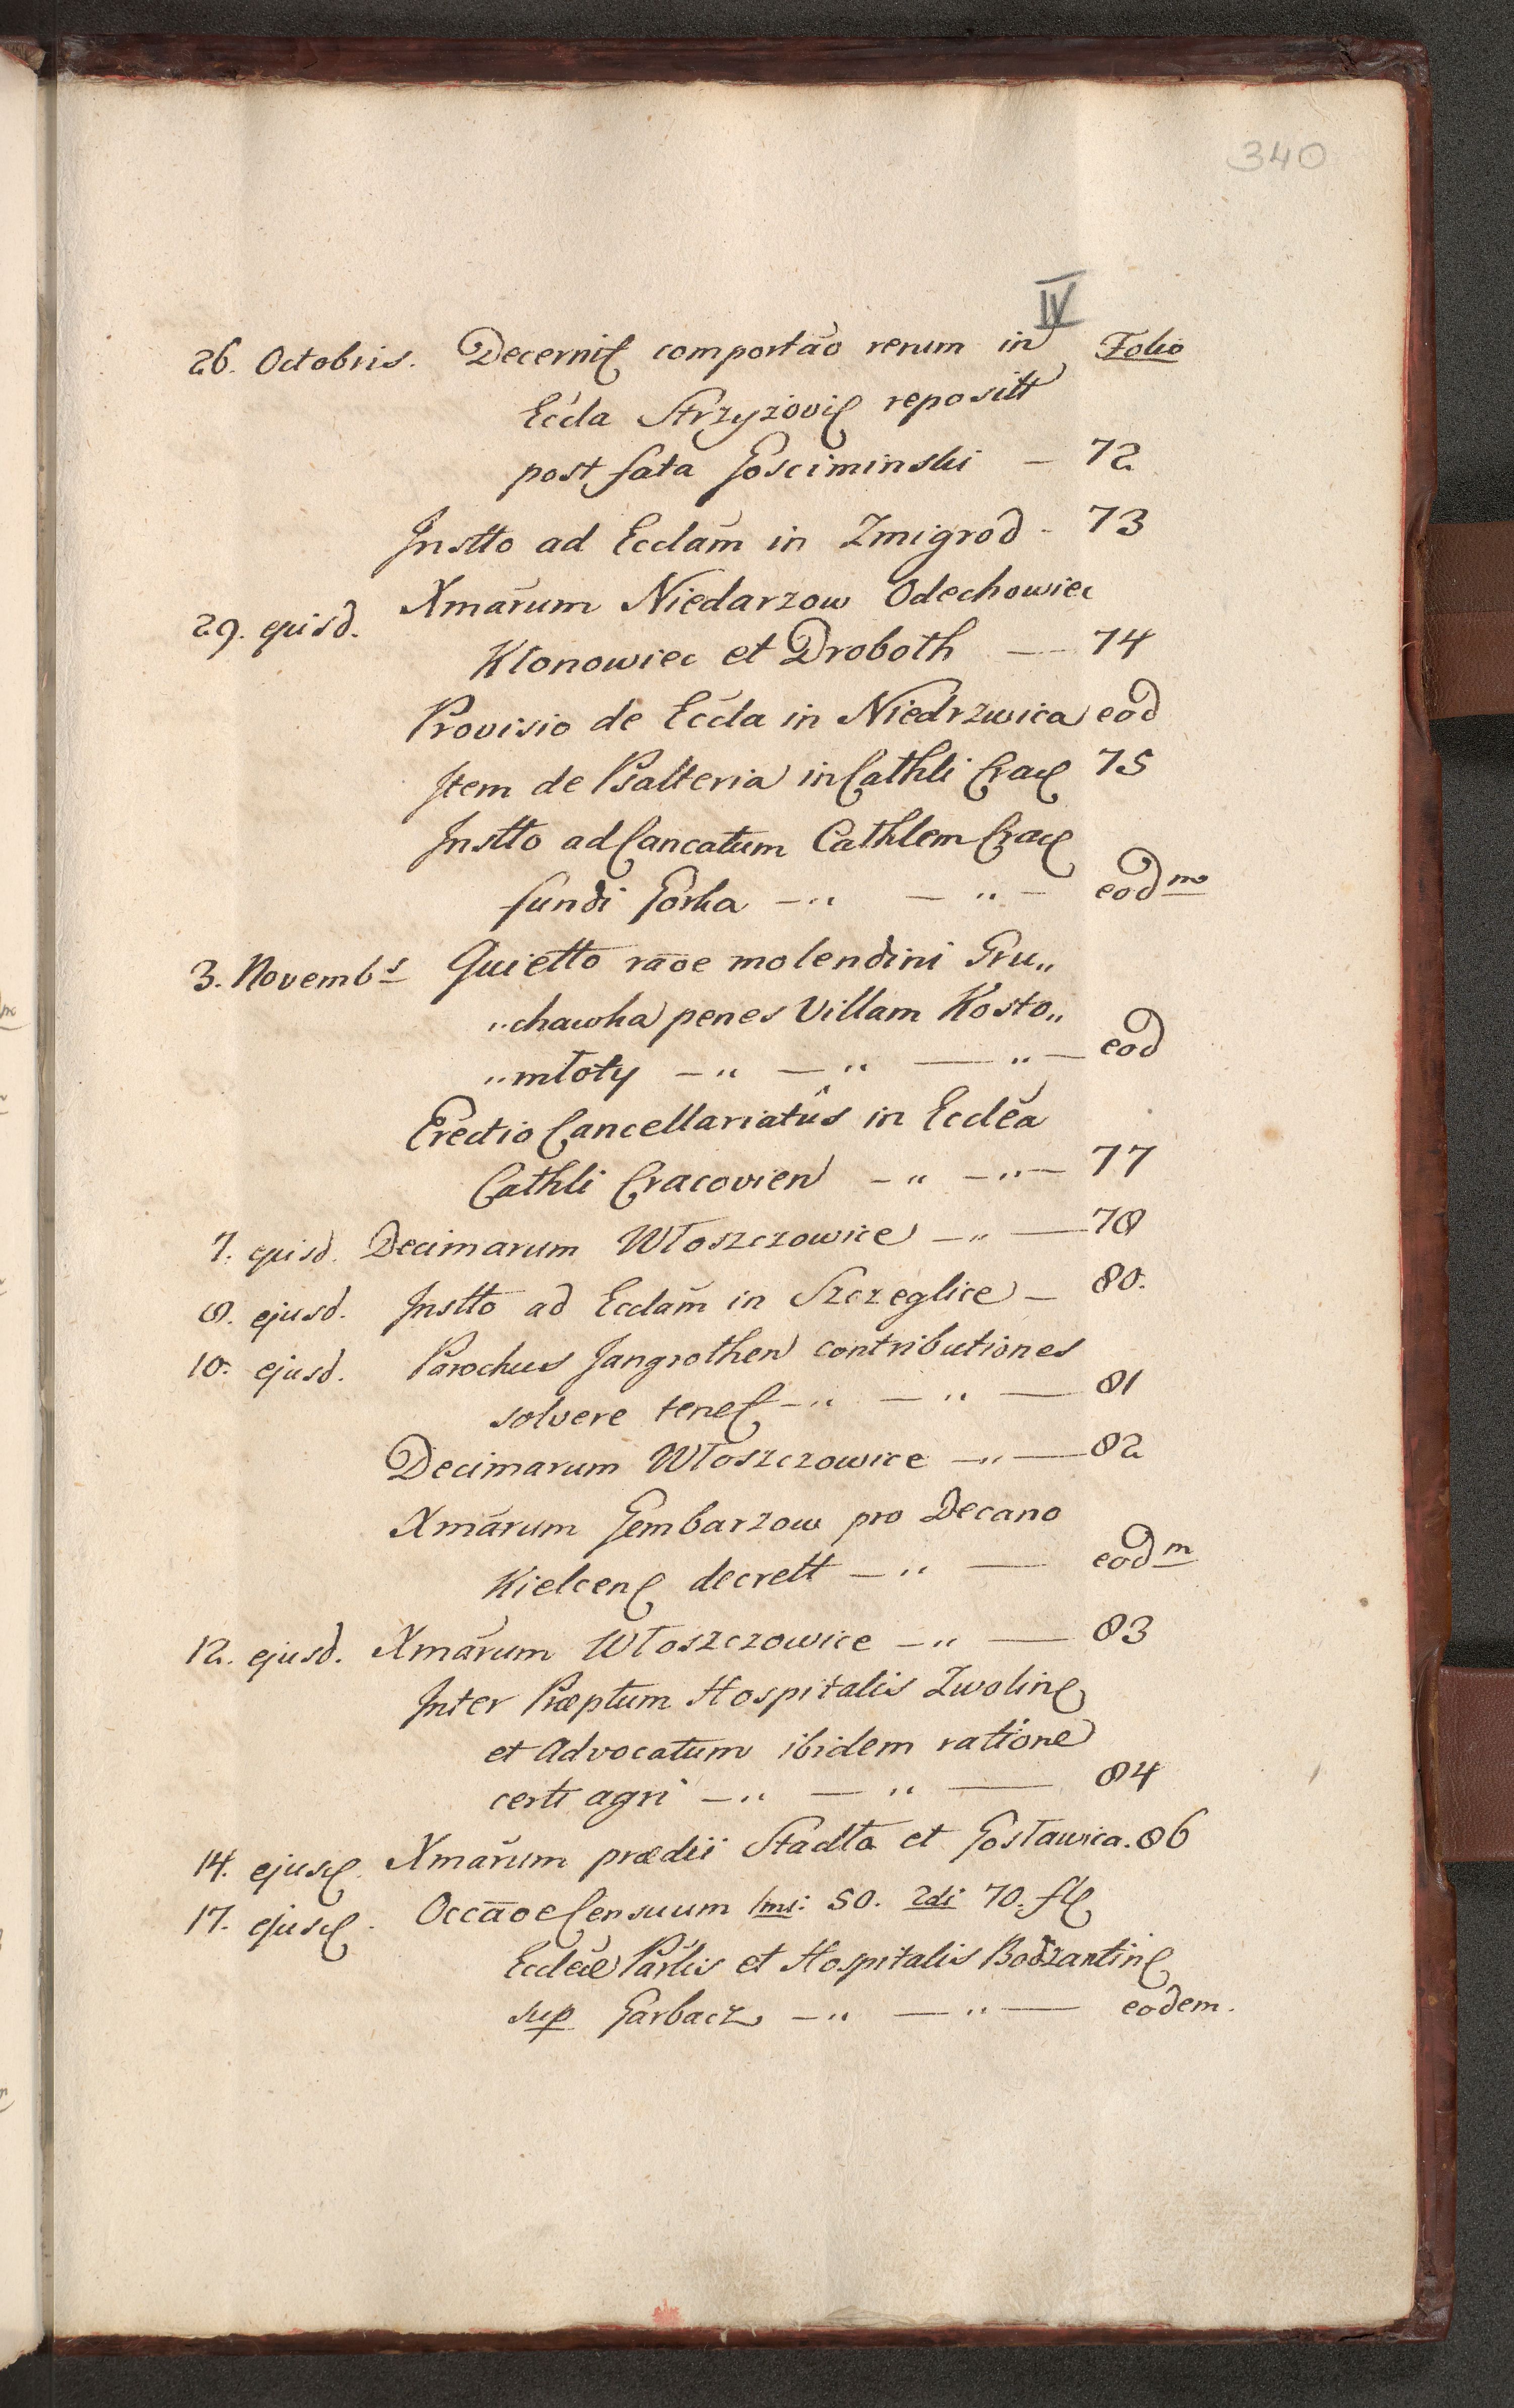 340
IV
26. Octobris. Decerniꝭ comportão rerum in Folio
Eccla Strzyżoviꝭ repositt
post fata Gosciminski — 72
Instto ad Ecclam in Zmigrod - 73
29. ejusd. Xmarum Niedarzow Odechowiec
Klonowiec et Droboth — 74
Provisio de Eccla in Niedrzwica eod
Item de Psalteria in Cathli Cracꝭ 75
Instto ad Cancatum Cathlem Cracꝭ
fundi Gorka —„ — „ — eodm
3. Novembs Quietto raõe molendini Gru„
„chawka penes Villam Kosto„
„młoty —„ —„ — „ — eod
Erectio Cancellariatûs in Ecclea
Cathli Cracovien —„ —„— 77
7. ejusd. Decimarum Włoszczowice —„ — 78
8. ejusd. Instto ad Ecclam in Szczeglice — 80.
10. ejusd. Parochus Jangrothen contributiones
solvere teneꝭ —„ — „ — 81
Decimarum Włoszczowice —„ — 82
Xmarum Gembarzow pro Decano
Kielcenꝭ decrett —„ — eodm
12. ejusd. Xmarum Włoszczowice —„ — 83
Inter Præptum Hospitalis Zwolinꝭ
et Advocatum ibidem ratione
certi agri —„ — „ — 84
14. ejusꝭ. Xmarum prædii Stadła et Gosławica. 86
17. ejusꝭ. Occaõe Censuum 1mi: 50. 2di 70. flꝭ
Ecclæ Parlis et Hospitalis Bodzantinꝭ
sup Garbacz —„ — „ — eodem.